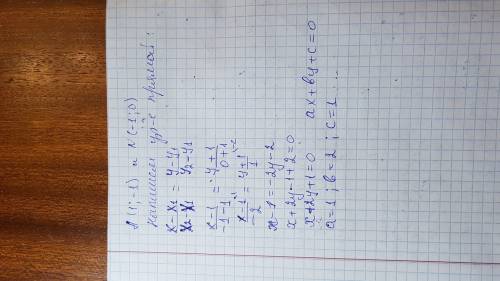 A(1;-1) и N(-1;0)
Напишем ур-е прямой:
x-x₁/x₂-x₁ = y-y₁/y₂-y₁
x-1/-1-1 = y+1/0+1
x-1/-2 = y+1/1
x-1=-2y-2
x+2y-1+2=0
x+2y+1=0 ax+by+c=0
a=1; b=2; c=1...